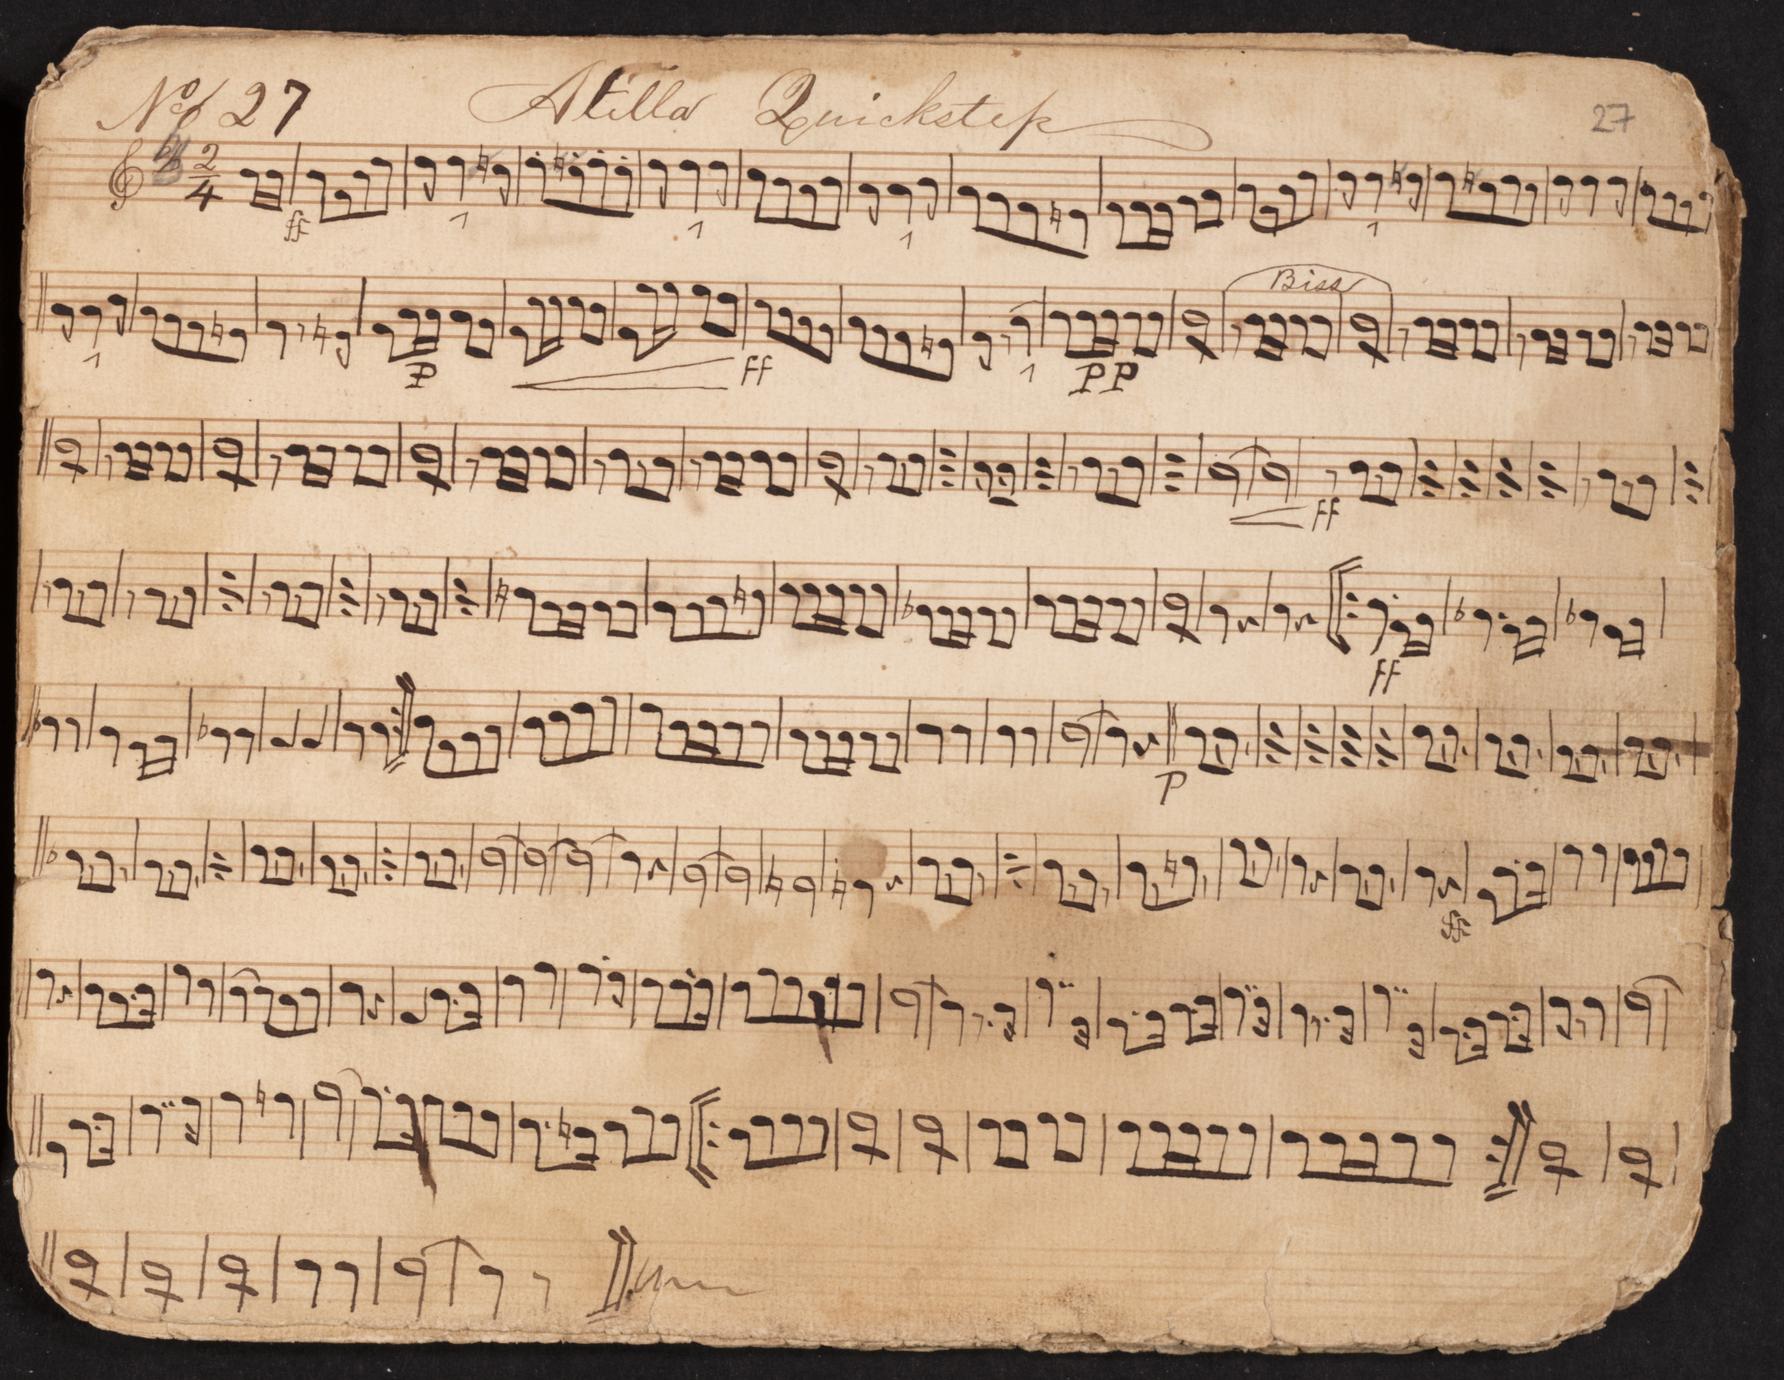 No. 27 Atilla Quickstep 27
2/4
ff
Biss
P ff PP
ff
ff
P
ff